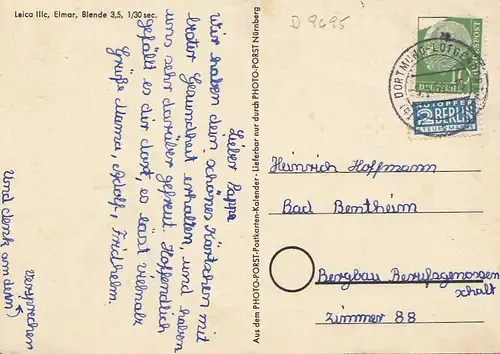 Leica IIIc, Elmar, Blende 3,5, 1/30 sec.
D 9695
Lieber Pappa
Wir haben dein schönes Kärtchen mit
bester Gesundheit erhalten, und haben
uns sehr darüber gefreut. Hoffendlich
gefällt es dir dort, es läst vielmals
Grüße Mama, Adolf, Fridhelm.
Und denk an dein
versprechen
Aus dem PHOTO-PORST-Postkarten-Kalender - Lieferbar nur durch PHOTO-PORST Nürnberg
DORTMUND-LÜTGEND
POST
10
DEUTSCHE
NOTOPFER
2 BERLIN
STEUERMARKE
Heinrich Hoffmann
Bad Bentheim
Bergbau Berufsgenossen
schalt
Zimmer 88